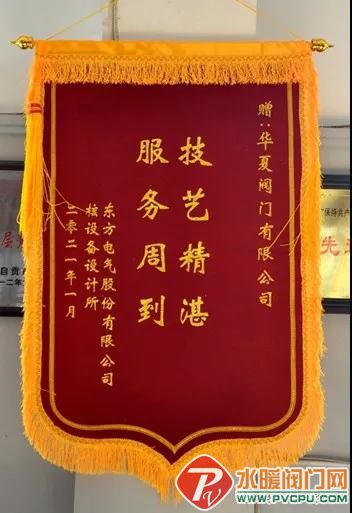 赠：华夏阀门有限公司
技艺精湛
服务周到
东方电气股份有限公司
核设备设计所
二零二一年一月
水暖阀门网
WWW.PVCPU.COM